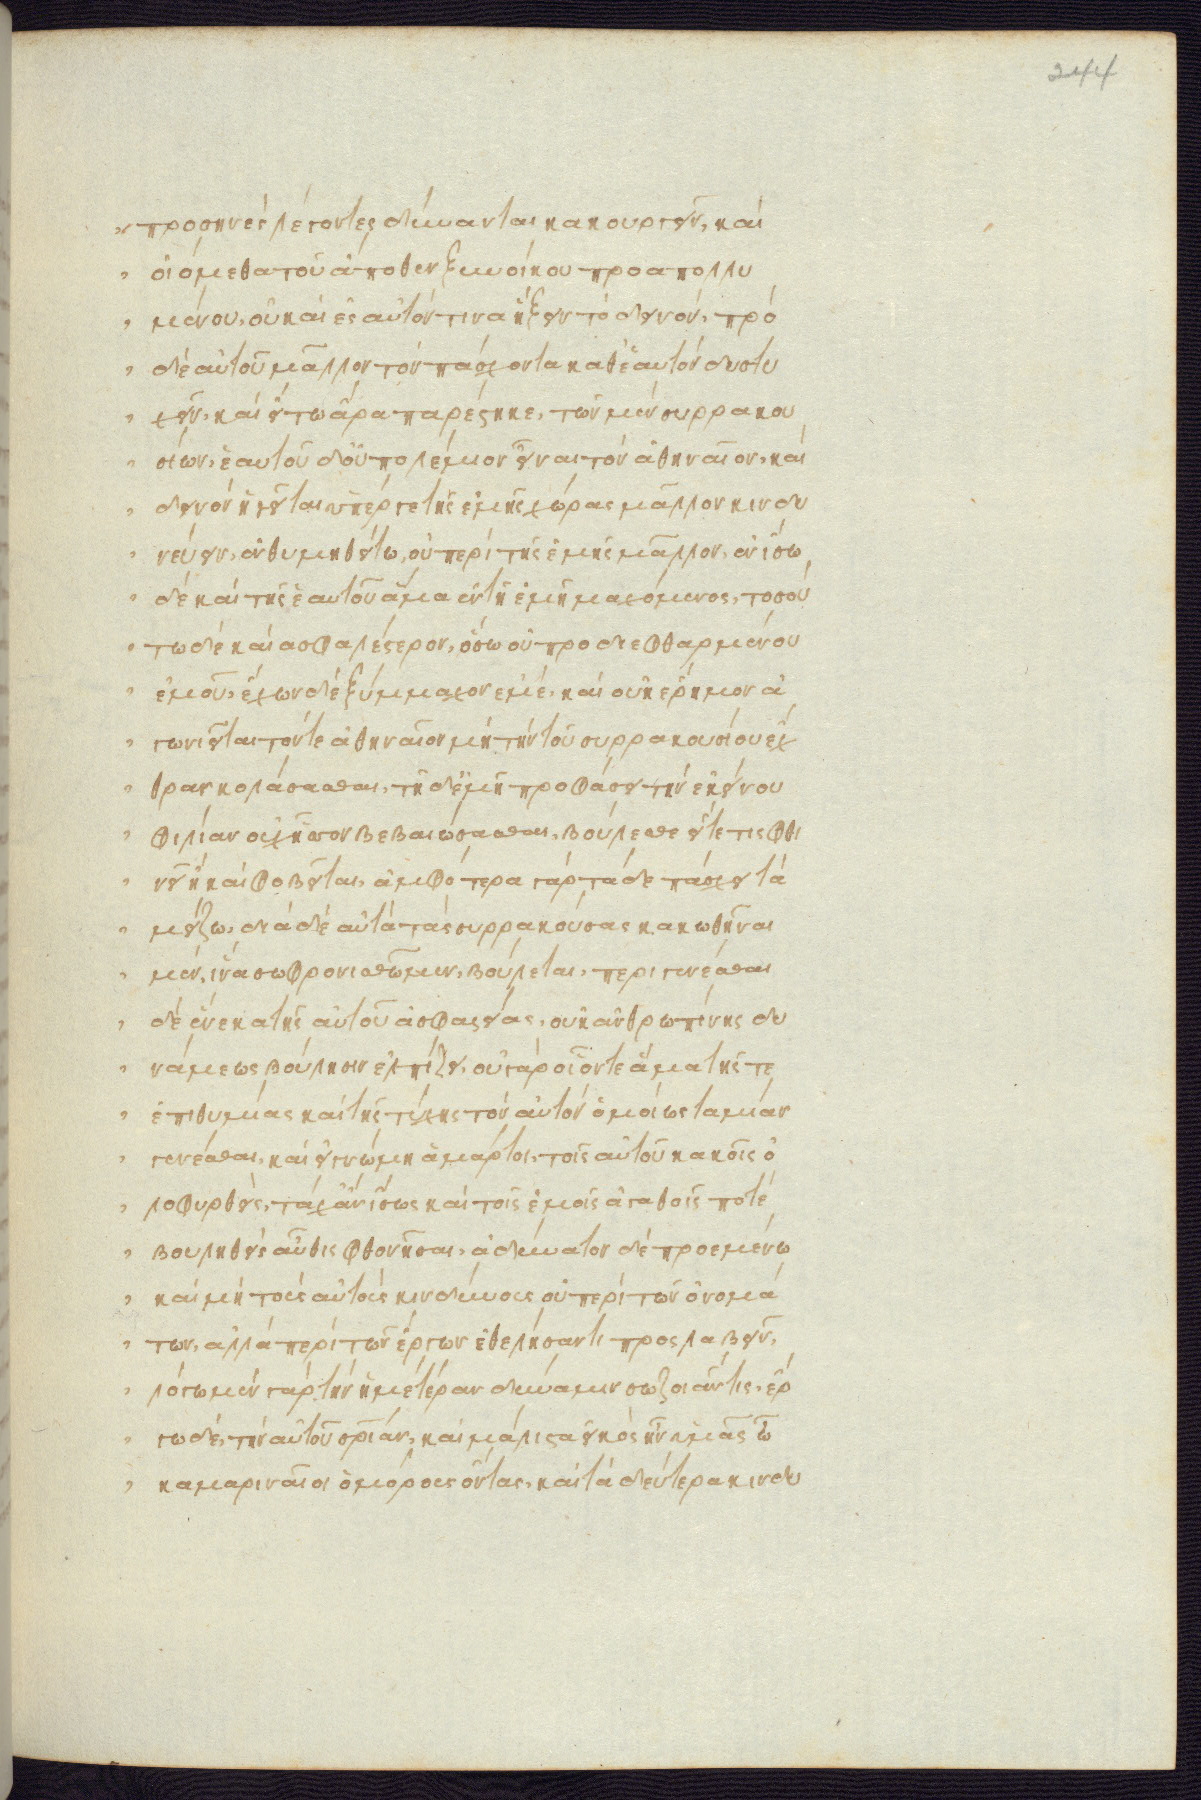 244
προσηνὲς λέγοντες δύνανται κακουργεῖν, καὶ
οἰόμεθα τοῦ ἄποθεν ξυνοίκου προαπολλυ
μένου, οὐ καὶ ἐς αὐτόν τινα ἥξειν τὸ δεινόν, πρὸ
δὲ αὐτοῦ μᾶλλον τὸν πάσχοντα καθ' ἑαυτὸν δυστυ
χεῖν, καὶ εἴ τω ἄρα παρέστηκε, τῶν μὲν συρρακου
σίων, ἑαυτοῦ δ' οὔ πολέμιον εἶναι τὸν ἀθηναῖον, καὶ
δεινὸν ἡγεῖται ὑπέρ γε τῆς ἐμῆς χώρας μᾶλλον κινδυ
νεύειν, ἐνθυμηθείτω, οὐ περὶ τῆς ἐμῆς μᾶλλον, ἐν ἴσω
δὲ καὶ τῆς ἑαυτοῦ ἅμα ἐν τῇ ἐμῇ μαχόμενος, τοσού
τω δὲ καὶ ασφαλέστερον, ὅσω οὐ προδιεφθαρμένου
ἐμοῦ, ἔχων δὲ ξύμμαχον εμέ, καὶ οὐκ ἐρήμον ἀ
γωνιεῖται τόν τε ἀθηναῖον μὴ τὴν τοῦ συρρακουσίου ἐχ
θραν κολάσασθαι, τῇ δ' ἐμῇ προφάσει τὴν ἐκείνου
φιλίαν οὐχ ἧσσον βεβαιώσασθαι, βούλεσθε εἴτε τις φθο
νεῖ ἢ καὶ φοβεῖται, ἀμφότερα γὰρ τάδε πάσχει τὰ
μείζω, διὰ δὲ αὐτὰ τὰς συρρακούσας κακωθῆναι
μὲν, ἵνα σωφρονισθῶμεν, βούλεται, περιγενέσθαι
δὲ ἕνεκα τῆς αὐτοῦ ἀσφαλείας, ουκ ἀνθρωπίνης δυ
νάμεως βούλησιν ελπίζει, οὐ γὰρ οἷόντε ἅμα τῆς τε
ἐπιθυμίας καὶ τῆς τύχης τὸν αὐτὸν ὁμοίως ταμίαν
γενέσθαι, καὶ εἰ γνώμη ἁμάρτοι, τοῖς αὐτοῦ κακοῖς ὀ
λοφυρθεὶς, τάχ' ἂν ἴσως καὶ τοῖς ἐμοῖς ἀγαθοῖς ποτὲ
βουληθεὶ αὖθις φθονῆσαι, ἀδύνατον δὲ προεμένω
καὶ μὴ τοὺς αὐτοὺς κινδύνους οὐ περὶ τῶν ὀνομά
των, αλλὰ περὶ τῶν ἔργων ἐθελήσαντι προσλαβεῖν,
λόγω μὲν γὰρ τὴν ἡμετέραν δύναμιν σώζοι ἄν τις, ἔρ
γω δὲ, τὴν αὐτοῦ σωτηρίαν, καὶ μάλιστα εἰκὸς ἦν ὑμᾶς ὦ
καμαριναῖοι ὁμόρους ὄντας, καὶ τὰ δεύτερα κινδυ